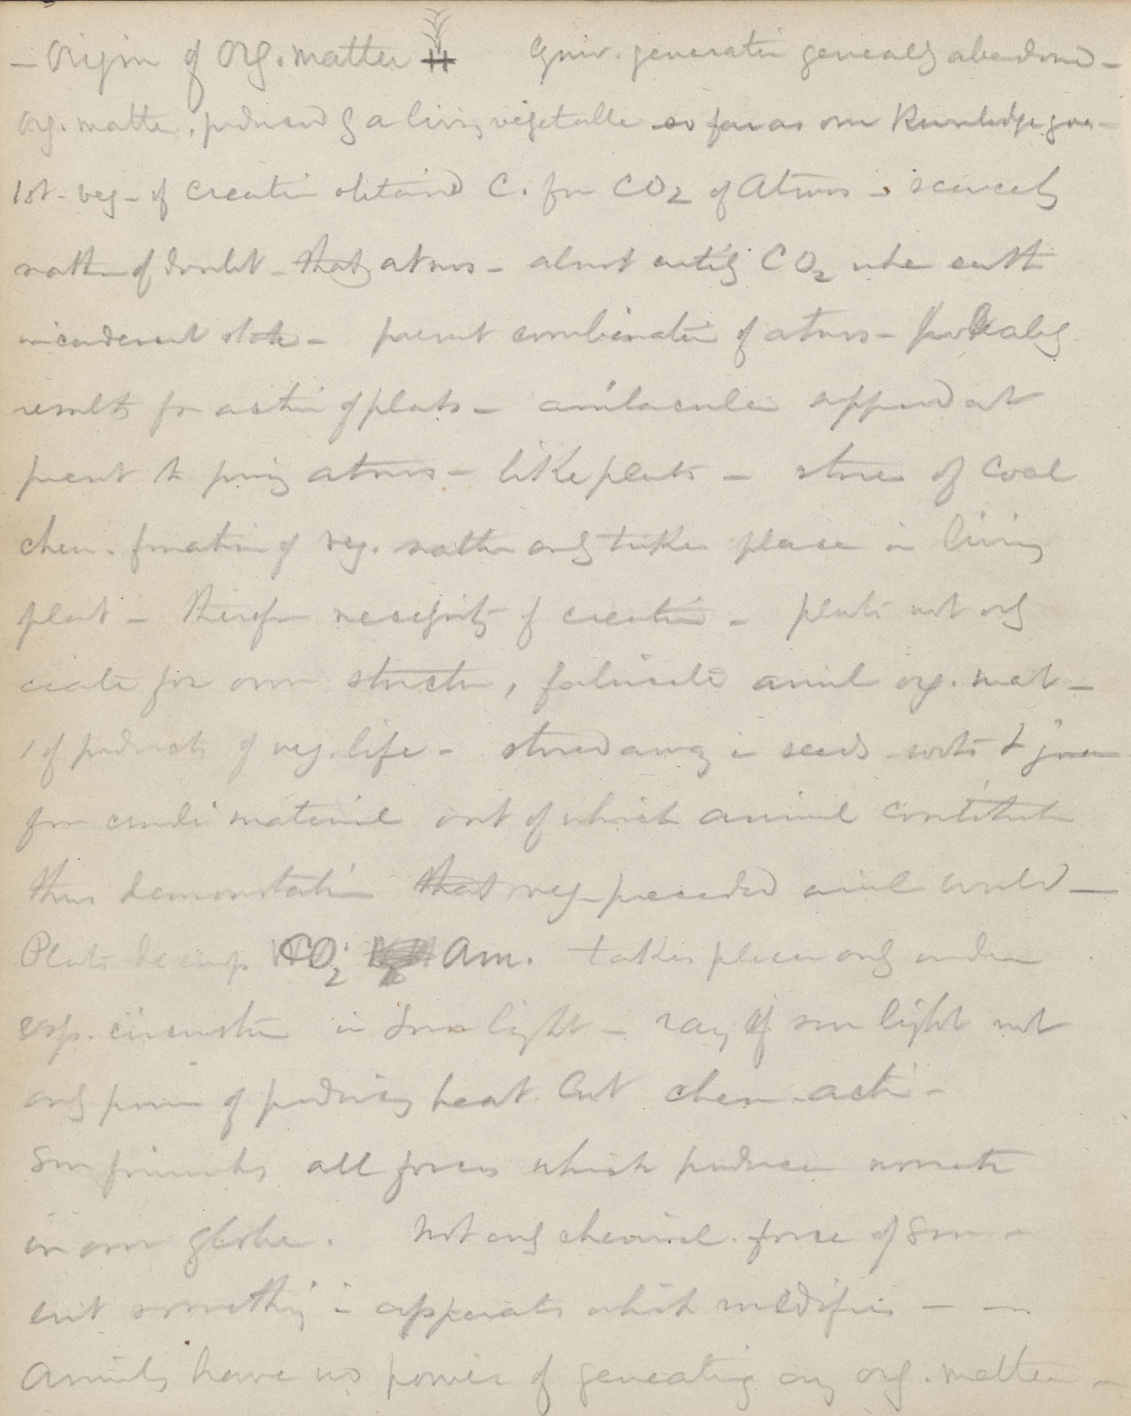 — Origin of Org. matter Equiv. generation generally abandoned —
Org. matter, produced by a living vegetable so far as our Knowledge goes —
1st - veg - of Creation obtained C. from CO2 of Atmos - scarcely
matter of doubt - that atmos - almost entirely CO2 when earth
incandescent state - present combination of atmos - probably
results from action of plants - animalcules supposed at
present to purify atmos - like plants - stores of Coal
chem. formation of veg. matter only takes place in living
plant - therefore necessity of creation - plants not only
create for own structure, fabricate animal org. mat -
1 of products of veg. life - stored away in seeds roots &
from crude material out of which animal constituted
thus demonstration that veg preceded animal world —
Plants decomp CO2 Am. takes place only under
esp. circumstances in Sun light - ray of sun light not
only power of producing heat but chem. action -
Sun furnishes all forces which produce
in our globe. Not only chemical force of Sun -
but something in apparatus which modifies - -
Animals have no power of generating any org. matter -